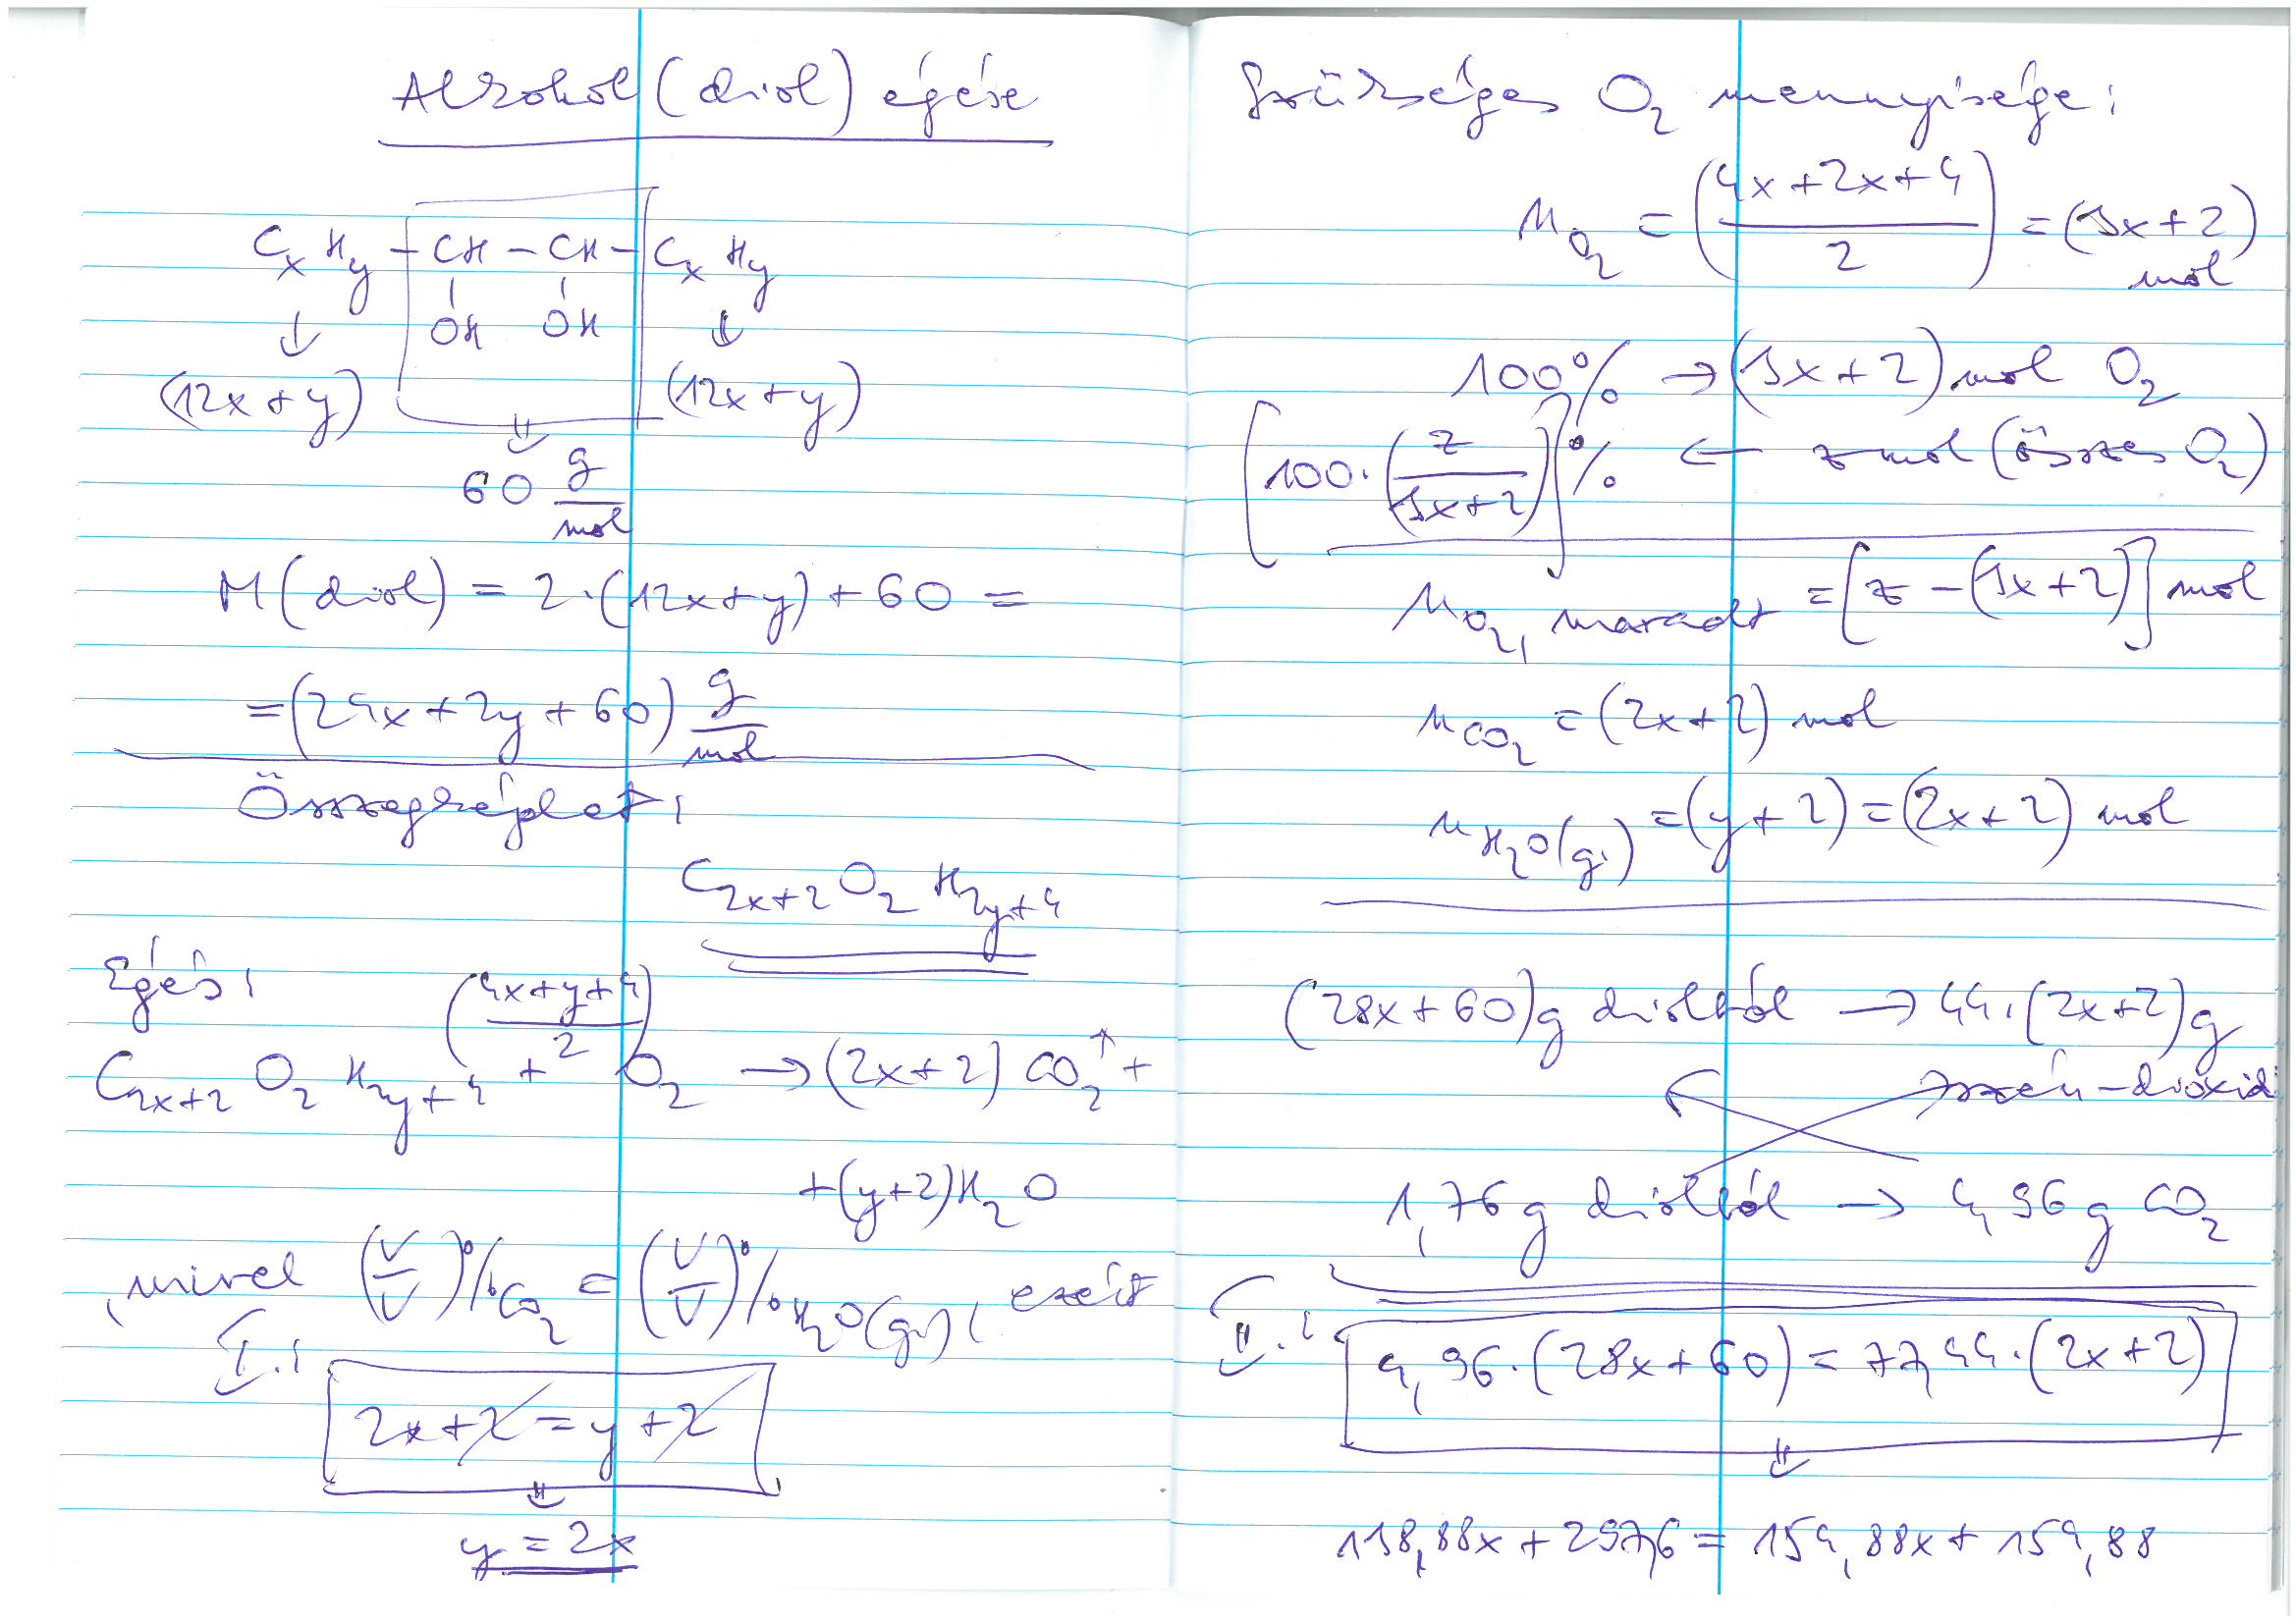 Alkohol (diol) égése
CxHy - CH - CH - CxHy
OH OH
(12x+y) (12x+y)
60 g/mol
M(diol) = 2·(12x+y)+60 =
=(24x+2y+60) g/mol
Összegképlet:
C2x+2 O2 H2y+4
Égés:
C2x+2 O2 H2y+4 + ((4x+y+4)/2) O2 → (2x+2) CO2↑ +
+(y+2)H2O
, mivel (V/V)%CO2 = (V/V)%H2O(g), ezért
I.:
2x+2=y+2
⇓
y=2x
Szükséges O2 mennyisége:
nO2 = ((4x+2x+4)/2) = (3x+2) mol
100% → (3x+2) mol O2
[100·(z/(3x+2))]% ← z mol (összes O2)
nO2, maradt = [z-(3x+2)] mol
nCO2 = (2x+2) mol
nH2O(g) = (y+2) = (2x+2) mol
(28x+60)g diolból → 44·(2x+2)g
szén-dioxid
1,76g diolból → 4,96g CO2
II.:
4,96·(28x+60) = 77,44·(2x+2)
⇓
138,88x + 297,6 = 154,88x + 154,88